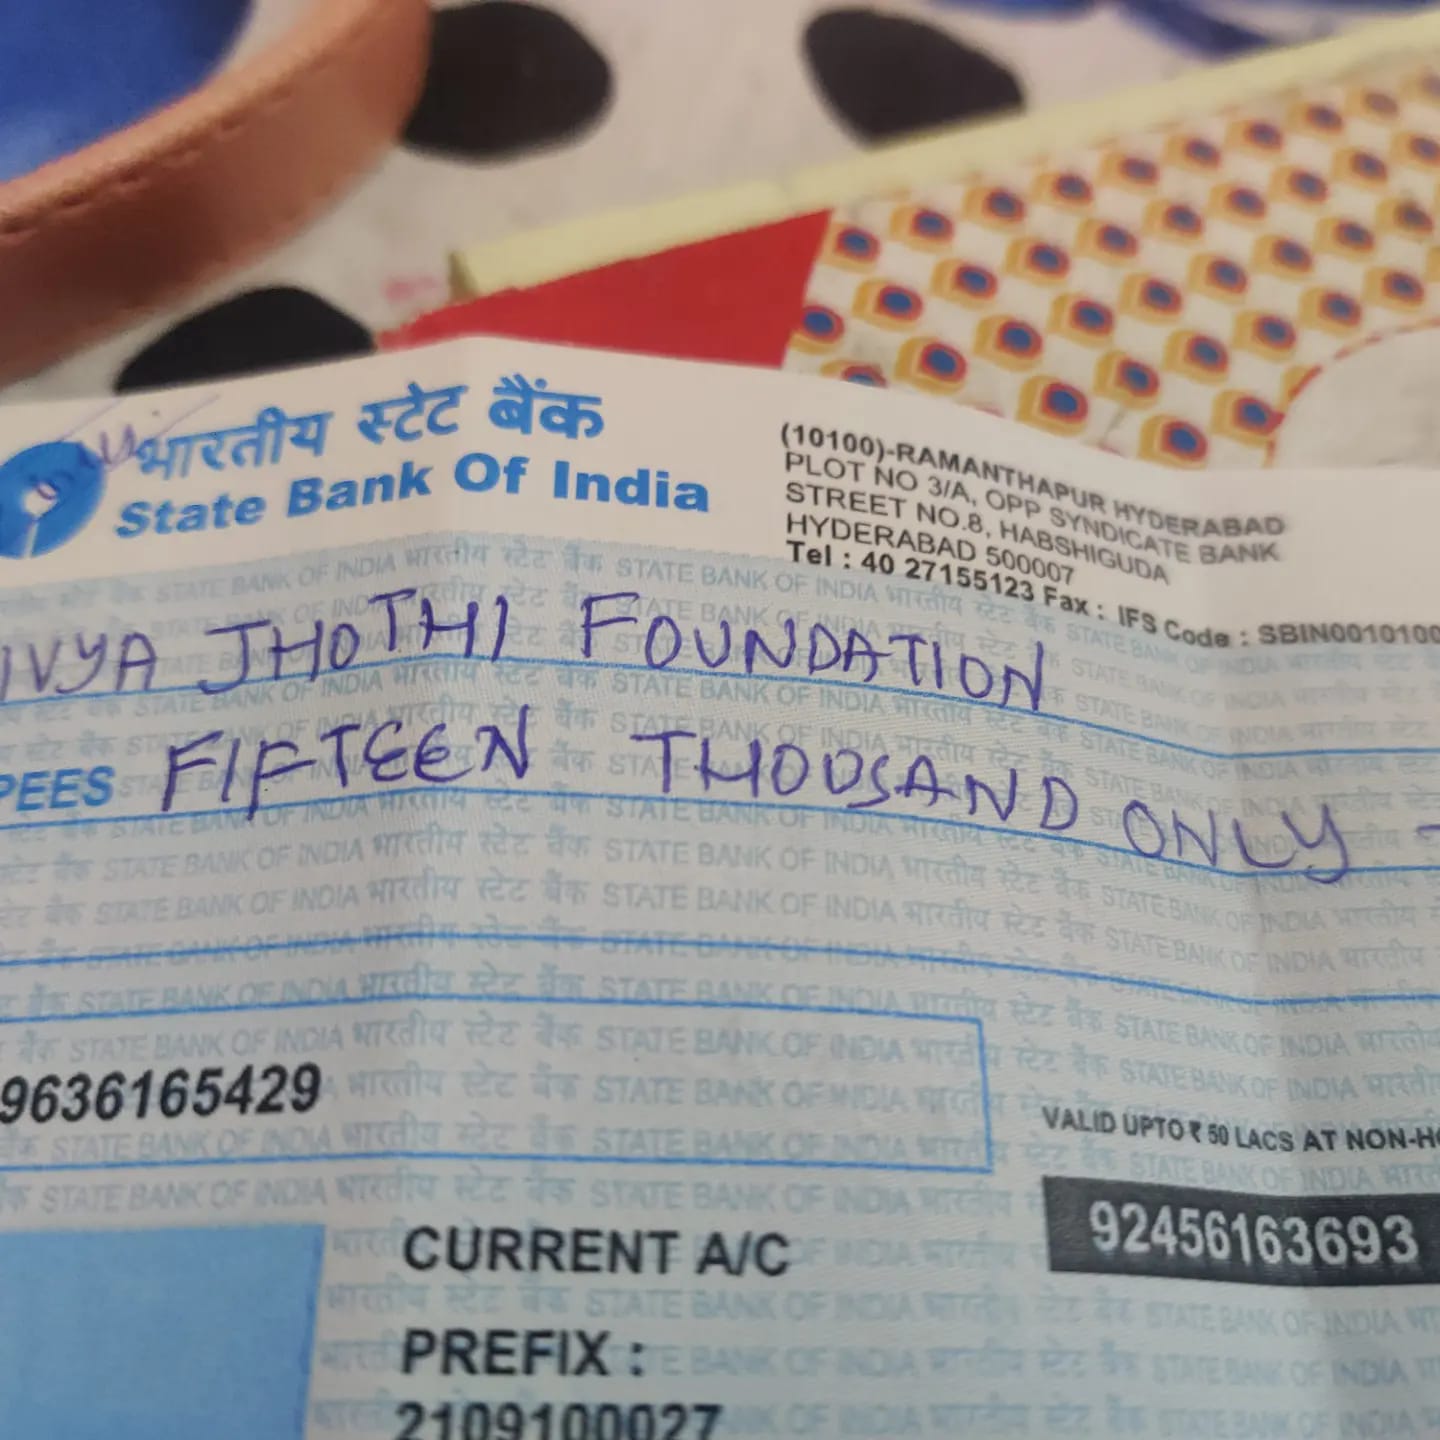 भारतीय स्टेट बैंक
State Bank Of India
(10100)-RAMANTHAPUR HYDERABAD
PLOT NO 3/A, OPP SYNDICATE BANK
STREET NO.8, HABSHIGUDA
HYDERABAD 500007
Tel : 40 27155123 Fax : IFS Code : SBIN0010100
IVYA JHOTHI FOUNDATION
PEES FIFTEEN THOUSAND ONLY -
9636165429
VALID UPTO ₹ 50 LACS AT NON-HO
92456163693
CURRENT A/C
PREFIX :
2109100027